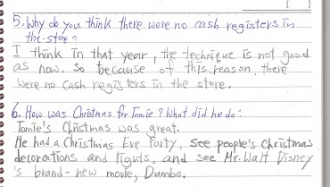 5. Why do you think there were no cash registers in
the store?
I think in that year, the technique is not good
as now. So because of this reason, there
were no cash registers in the store.
6. How was Christmas for Tomie? What did he do:
Tomie's Christmas was great.
He had a Christmas Eve Party, see people's Christmas
decorations and lights, and see Mr. Walt Disney
's brand-new movie, Dumbo.